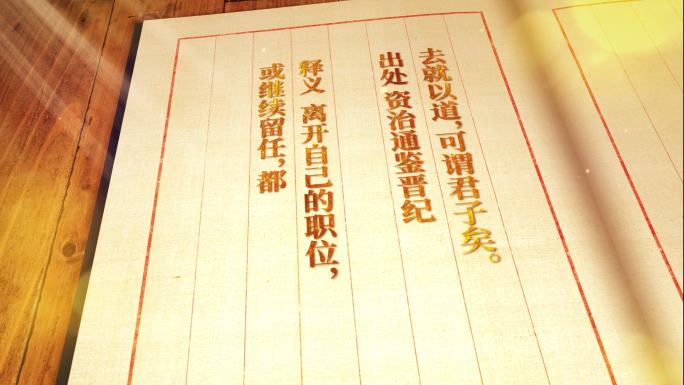 去就以道，可谓君子矣。
出处 资治通鉴晋纪
释义 离开自己的职位，
或继续留任，都